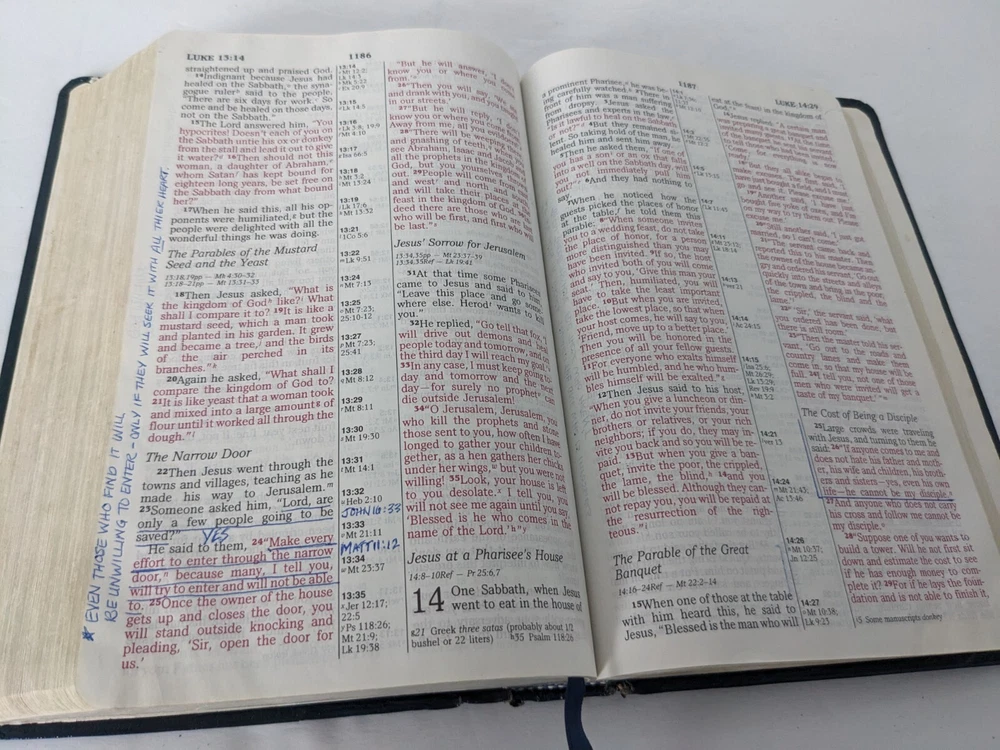 LUKE 13:14
1186
straightened up and praised God.
14Indignant because Jesus had
healed on the Sabbath, the syna-
gogue ruler said to the people,
"There are six days for work. So
come and be healed on those days,
not on the Sabbath."
15The Lord answered him, "You
hypocrites! Doesn't each of you on
the Sabbath untie his ox or donkey
from the stall and lead it out to give
it water? 16Then should not this
woman, a daughter of Abraham,
whom Satan has kept bound for
eighteen long years, be set free on
the Sabbath day from what bound
her?"
17When he said this, all his op-
ponents were humiliated, but the
people were delighted with all the
wonderful things he was doing.
The Parables of the Mustard
Seed and the Yeast
13:18,19pp — Mt 4:30-32
13:18-21pp — Mt 13:31-33
18Then Jesus asked, "What is
the kingdom of God like? What
shall I compare it to? 19It is like a
mustard seed, which a man took
and planted in his garden. It grew
and became a tree, and the birds
of the air perched in its
branches."
20Again he asked, "What shall I
compare the kingdom of God to?
21It is like yeast that a woman took
and mixed into a large amount of
flour until it worked all through the
dough."
The Narrow Door
22Then Jesus went through the
towns and villages, teaching as he
made his way to Jerusalem.
23Someone asked him, "Lord, are
only a few people going to be
saved?" YES
He said to them, 24"Make every
effort to enter through the narrow
door, because many, I tell you,
will try to enter and will not be able
to. 25Once the owner of the house
gets up and closes the door, you
will stand outside knocking and
pleading, 'Sir, open the door for
us.'
EVEN THOSE WHO FIND IT WILL
BE UNWILLING TO ENTER - ONLY IF THEY WILL SEEK IT WITH ALL THIER HEART.
13:14
13:15
13:16
13:17
Isa 66:5
13:18
Mt 3:2
Mt 13:24
13:19
Lk 17:6
Mt 13:32
13:21
1Co 5:6
13:22
Lk 9:51
13:24
Mt 7:13
13:25
Mt 7:23;
25:10-12
13:27
Mt 7:23;
25:41
13:28
Mt 8:12
13:29
Mt 8:11
13:30
Mt 19:30
13:31
Mt 14:1
13:32
Heb 2:10
JOHN 10:33
13:33
Mt 21:11
MATT 11:12
13:34
Mt 23:37
13:35
Jer 12:17;
22:5
Ps 118:26;
Mt 21:9;
Lk 19:38
"But he will answer, 'I don't
know you or where you come
from.'
26"Then you will say, 'We ate
and drank with you, and you taught
in our streets.'
27"But he will reply, 'I don't
know you or where you come from.
Away from me, all you evildoers!'
28"There will be weeping there,
and gnashing of teeth, when you
see Abraham, Isaac and Jacob and
all the prophets in the kingdom of
God, but you yourselves thrown
out. 29People will come from east
and west and north and south,
and will take their places at the
feast in the kingdom of God. 30In-
deed there are those who are last
who will be first, and first who will
be last."
Jesus' Sorrow for Jerusalem
13:34,35pp — Mt 23:37-39
13:34,35Ref — Lk 19:41
31At that time some Pharisees
came to Jesus and said to him,
"Leave this place and go some-
where else. Herod wants to kill
you."
32He replied, "Go tell that fox, 'I
will drive out demons and heal
people today and tomorrow, and on
the third day I will reach my goal.'
33In any case, I must keep going to-
day and tomorrow and the next
day—for surely no prophet can
die outside Jerusalem!
34"O Jerusalem, Jerusalem, you
who kill the prophets and stone
those sent to you, how often I have
longed to gather your children to-
gether, as a hen gathers her chicks
under her wings, but you were not
willing! 35Look, your house is left
to you desolate. I tell you, you
will not see me again until you say,
'Blessed is he who comes in the
name of the Lord.'"
Jesus at a Pharisee's House
14:8-10Ref — Pr 25:6,7
14 One Sabbath, when Jesus
went to eat in the house of
21 Greek three satas (probably about 1/2
bushel or 22 liters) 35 Psalm 118:26
1187
LUKE 14:29
a prominent Pharisee, he was be-
ing carefully watched. 2There in
front of him was a man suffering
from dropsy. 3Jesus asked the
Pharisees and experts in the law,
"Is it lawful to heal on the Sabbath
or not?" 4But they remained si-
lent. So taking hold of the man, he
healed him and sent him away.
5Then he asked them, "If one of
you has a son or an ox that falls
into a well on the Sabbath day, will
you not immediately pull him
out?" 6And they had nothing to
say.
7When he noticed how the
guests picked the places of honor
at the table, he told them this
parable: 8"When someone invites
you to a wedding feast, do not take
the place of honor, for a person
more distinguished than you may
have been invited. 9If so, the host
who invited both of you will come
and say to you, 'Give this man your
seat.' Then, humiliated, you will
have to take the least important
place. 10But when you are invited,
take the lowest place, so that when
your host comes, he will say to you,
'Friend, move up to a better place.'
Then you will be honored in the
presence of all your fellow guests.
11For everyone who exalts himself
will be humbled, and he who hum-
bles himself will be exalted."
12Then Jesus said to his host,
"When you give a luncheon or din-
ner, do not invite your friends, your
brothers or relatives, or your rich
neighbors; if you do, they may in-
vite you back and so you will be re-
paid. 13But when you give a ban-
quet, invite the poor, the crippled,
the lame, the blind, 14and you
will be blessed. Although they can-
not repay you, you will be repaid at
the resurrection of the righ-
teous."
The Parable of the Great
Banquet
14:16-24Ref — Mt 22:2-14
15When one of those at the table
with him heard this, he said to
Jesus, "Blessed is the man who will
14:11
14:13
14:14
Ac 24:15
14:15
Isa 25:6;
Mt 26:29;
Lk 13:29;
Rev 19:9
Mt 3:2
14:21
ver 13
14:24
Mt 21:43;
Ac 13:46
14:26
Mt 10:37;
Jn 12:25
14:27
Mt 10:38;
Lk 9:23
eat at the feast in the kingdom of
God."
16Jesus replied: "A certain man
18"But they all alike began to
bought a field, and I must
go and see it. Please excuse me.'
19"Another said, 'I have just
bought five yoke of oxen, and I'm
on my way to try them out. Please
excuse me.'
20"Still another said, 'I just got
married, so I can't come.'
21"The servant came back and
reported this to his master. Then
the owner of the house became an-
gry and ordered his servant, 'Go out
quickly into the streets and alleys
of the town and bring in the poor,
the crippled, the blind and the
lame.'
22"'Sir,' the servant said, 'what
you ordered has been done, but
there is still room.'
23"Then the master told his ser-
vant, 'Go out to the roads and
country lanes and make them
come in, so that my house will be
full. 24I tell you, not one of those
men who were invited will get a
taste of my banquet.'"
The Cost of Being a Disciple
25Large crowds were traveling
with Jesus, and turning to them he
said: 26"If anyone comes to me and
does not hate his father and moth-
er, his wife and children, his broth-
ers and sisters—yes, even his own
life—he cannot be my disciple.
27And anyone who does not carry
his cross and follow me cannot be
my disciple.
28"Suppose one of you wants to
build a tower. Will he not first sit
down and estimate the cost to see
if he has enough money to com-
plete it? 29For if he lays the foun-
dation and is not able to finish it,
5 Some manuscripts donkey